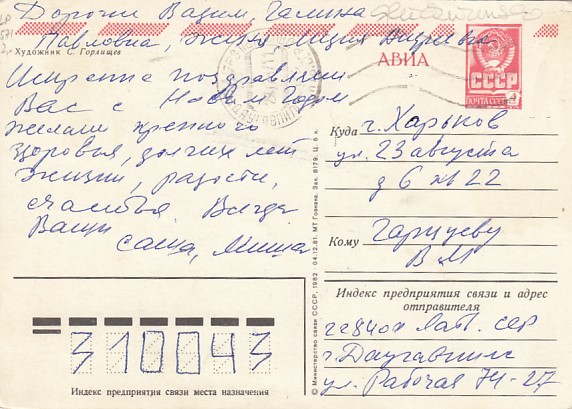 Дорогие Вадим, Галина
Павловна, Женя, Лидия Андреевна
Художник С. Горлищев
Искренне поздравляем
Вас с Новым Годом
желаем крепкого
здоровья, долгих лет
жизни, радости,
счастья Всегда
Ваши
Саша, Миша
АВИА
СССР
ПОЧТА СССР
Куда г. Харьков
ул. 23 августа
д 6 кв 22
Кому Гарцуеву
В М
Индекс предприятия связи и адрес
отправителя
228400 Лат. ССР
г. Даугавпилс
ул. Рабочая 74-27
310043
Индекс предприятия связи места назначения
© Министерство связи СССР, 1982 04.12.81. МТ Гознака. Зак. 8179. Ц. 6 к.